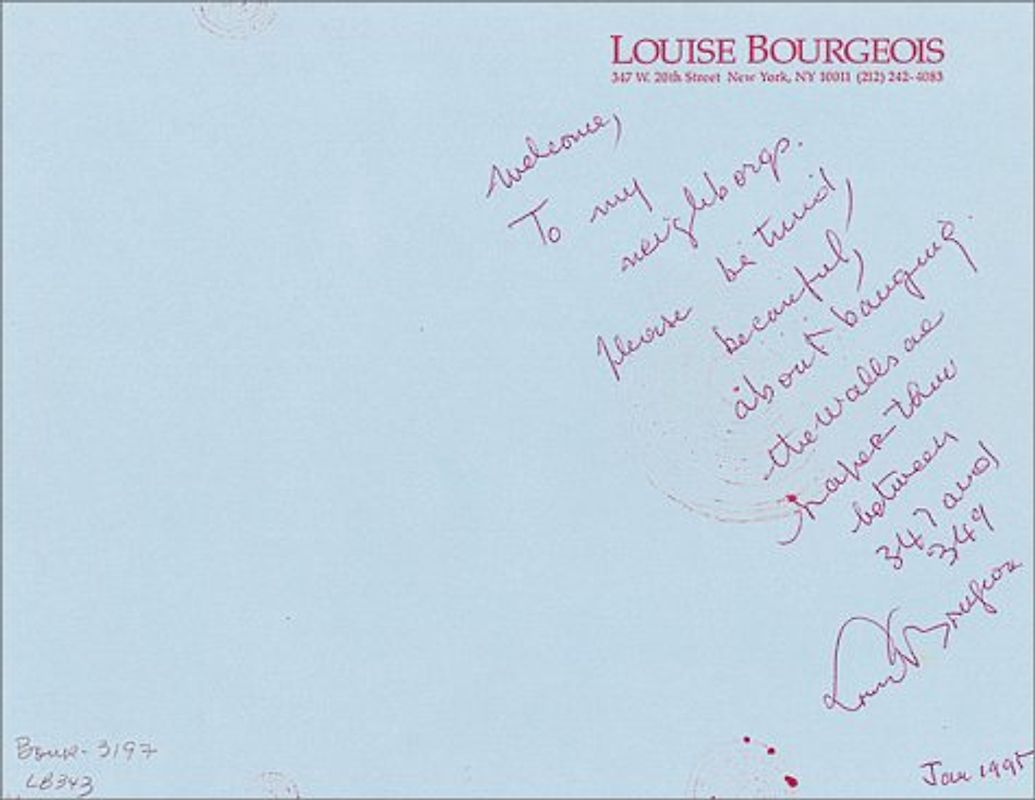 LOUISE BOURGEOIS
347 W. 20th Street New York, NY 10011 (212) 242-4083
Welcome,
To my
neighborgs.
please be timid,
becareful,
about banging.
the walls are
paper thin
between
347 and
349
Louise Bourgeois
Jan 1995
Bour-3197
LB343